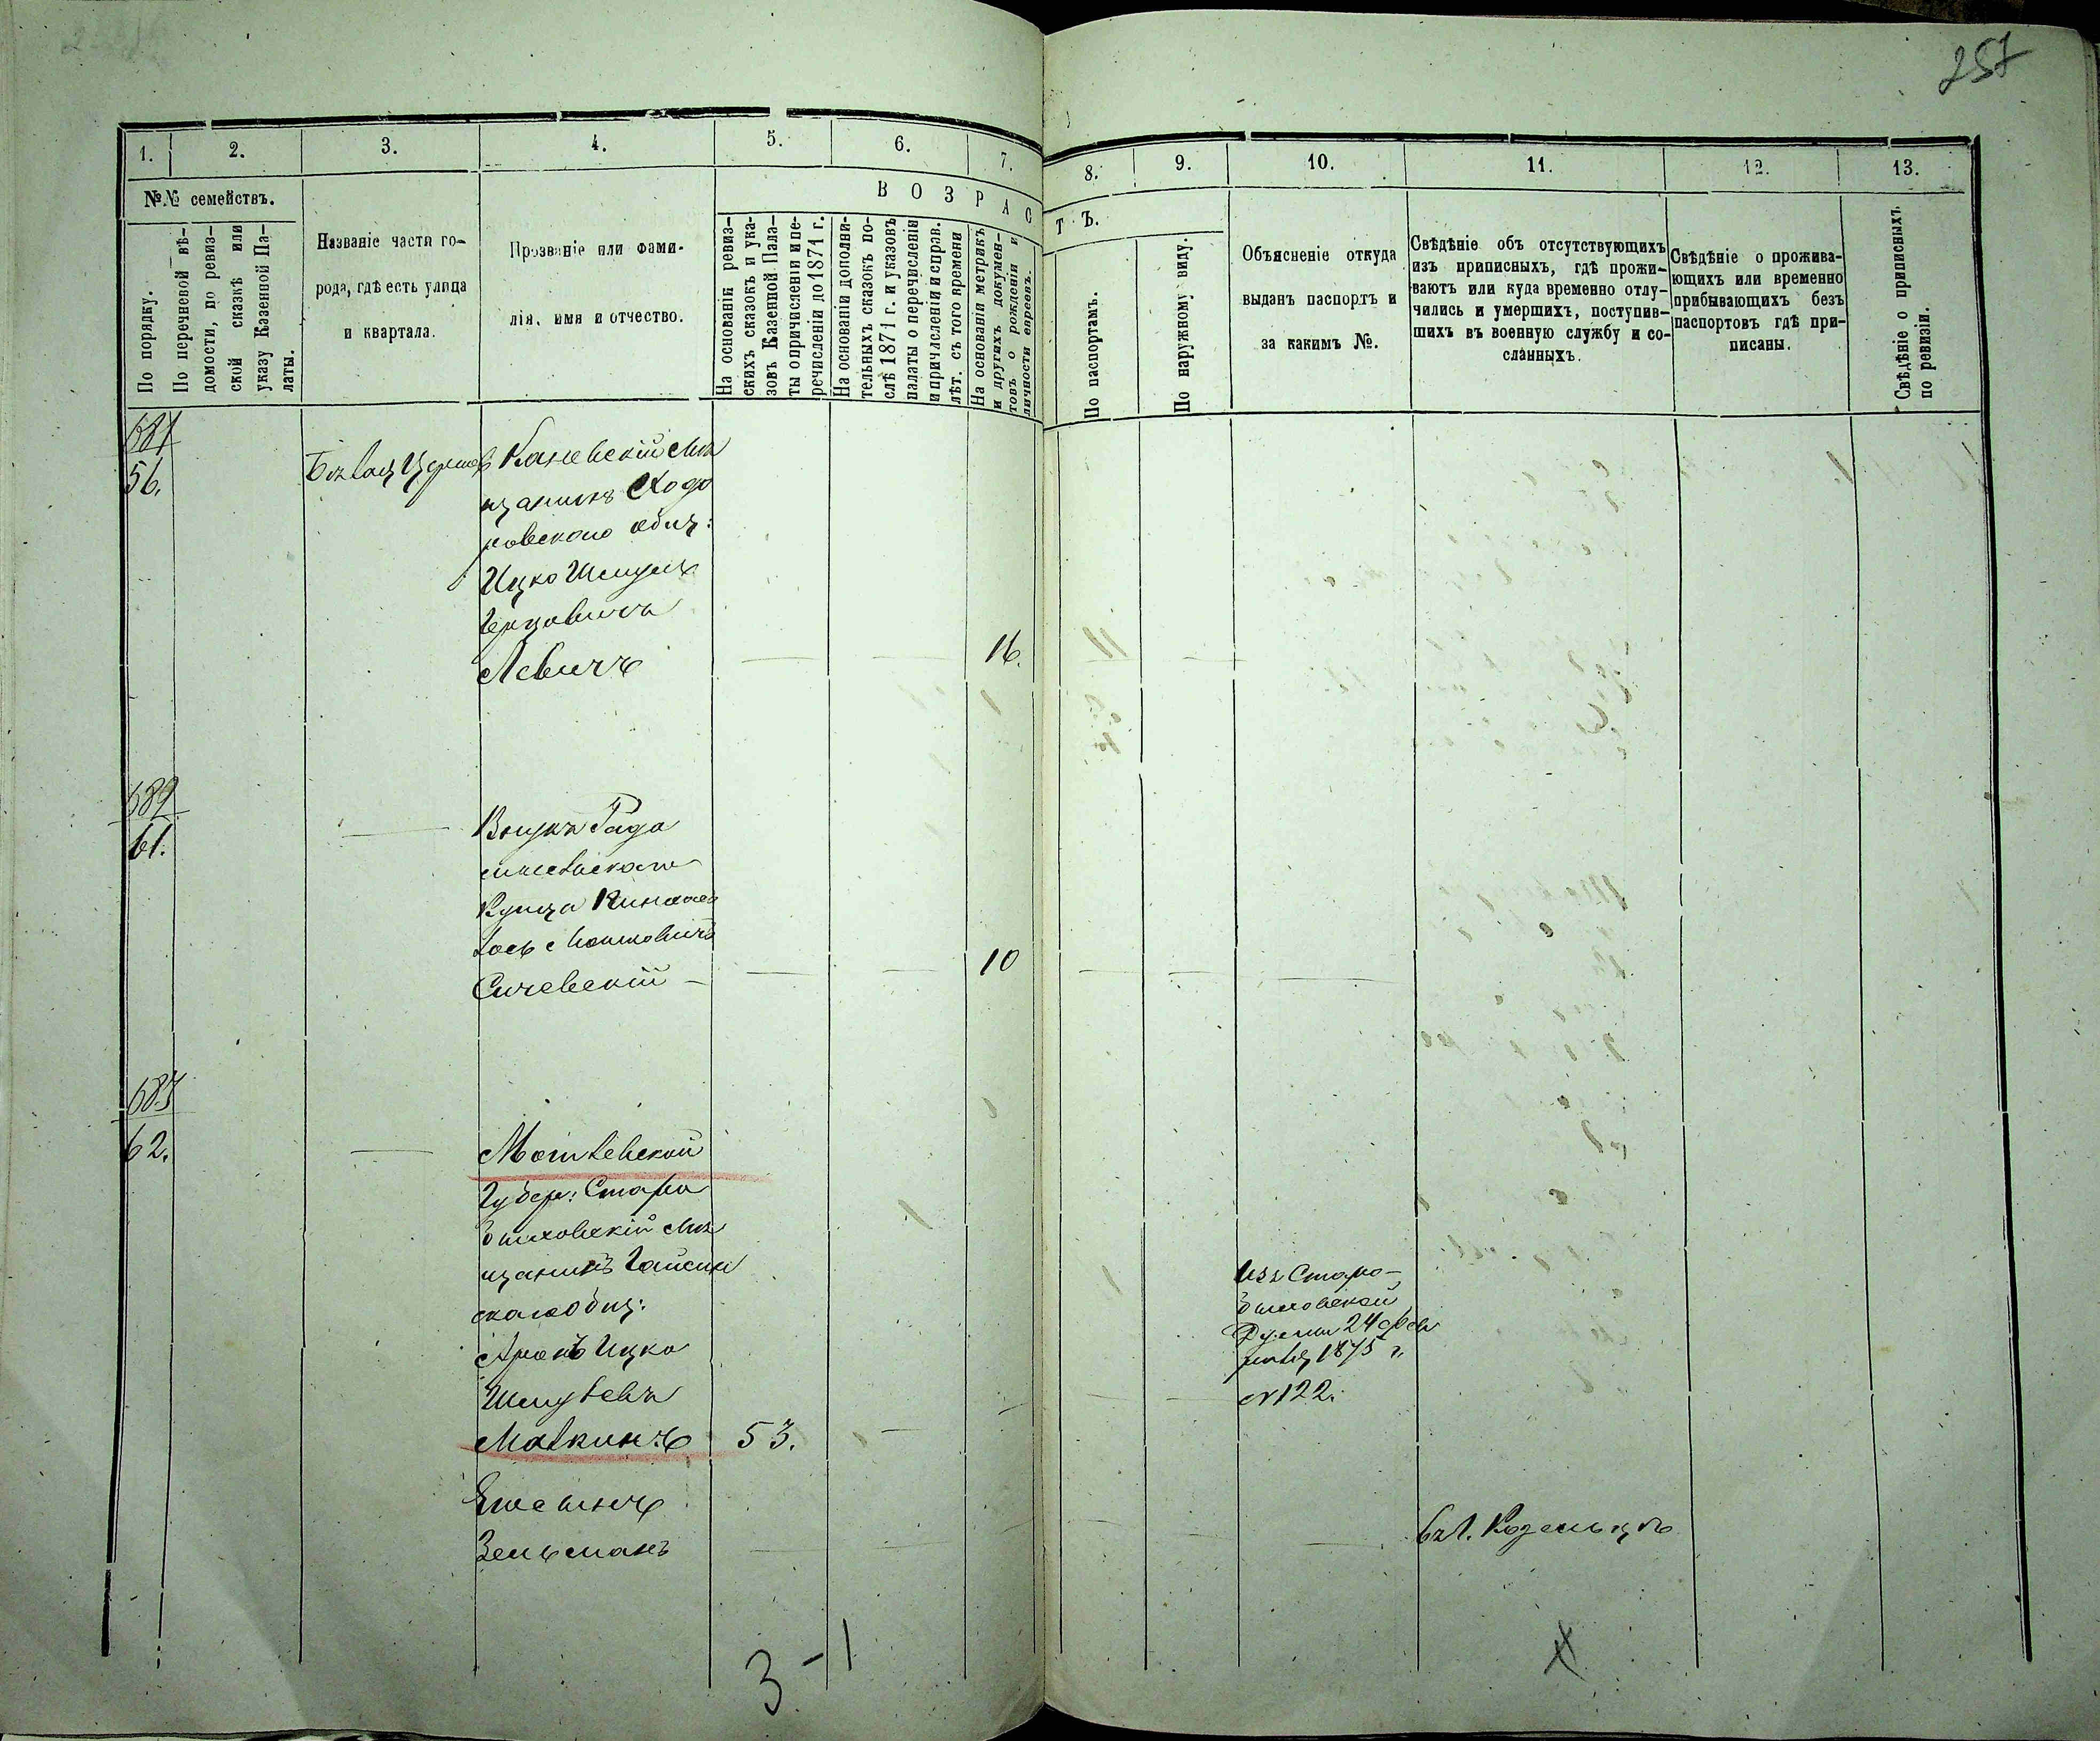 257
1.
2.
3.
4.
5.
6.
7.
8.
9.
10.
11.
12.
13.
№№ семействъ.
В О З Р А С
Т Ъ.
По порядку.
По перечневой вѣ-
домости, по ревиз-
ской сказкѣ или
указу Казенной Па-
латы.
Названіе части го-
рода, гдѣ есть улица
и квартала.
Прозваніе или фами-
лія, имя и отчество.
На основаніи ревиз-
скихъ сказокъ и ука-
зовъ Казенной Пала-
ты о причисленіи и пе-
речисленіи до 1871 г.
На основаніи дополни-
тельныхъ сказокъ по-
слѣ 1871 г. и указовъ
палаты о перечисленіи
и причисленіи и справ.
лѣт. съ того времени
На основаніи метрикъ
и другихъ докумен-
товъ о рожденіи и
личности евреевъ.
По паспортамъ.
По наружному виду.
Объясненіе откуда
выданъ паспортъ и
за какимъ №.
Свѣдѣніе объ отсутствующихъ
изъ приписныхъ, гдѣ прожи-
ваютъ или куда временно отлу-
чились и умершихъ, поступив-
шихъ въ военную службу и со-
сланныхъ.
Свѣдѣніе о прожива-
ющихъ или временно
прибывающихъ безъ
паспортовъ гдѣ при-
писаны.
Свѣдѣніе о приписныхъ
по ревизіи.
681
56.
Каневскій мѣ
щанинъ Ходо
ровского общ:
Ицко Шмуль
Герцовичъ
Левичъ
16.
682
61.
Внукъ Радо
мысльского
Купца
Мошковичъ
Сичевскій
10
683
62.
Могилевской
Губер: Старо
быховскій мѣ
щанинъ
скаго Общ:
Аронъ Ицко
Шмулевъ
Малкинъ
53.
Зельманъ
Изъ Старо-
быховской
Думы 24 фев
раля 1875 г.
№ 122.
въ г. Козельцѣ
3-1